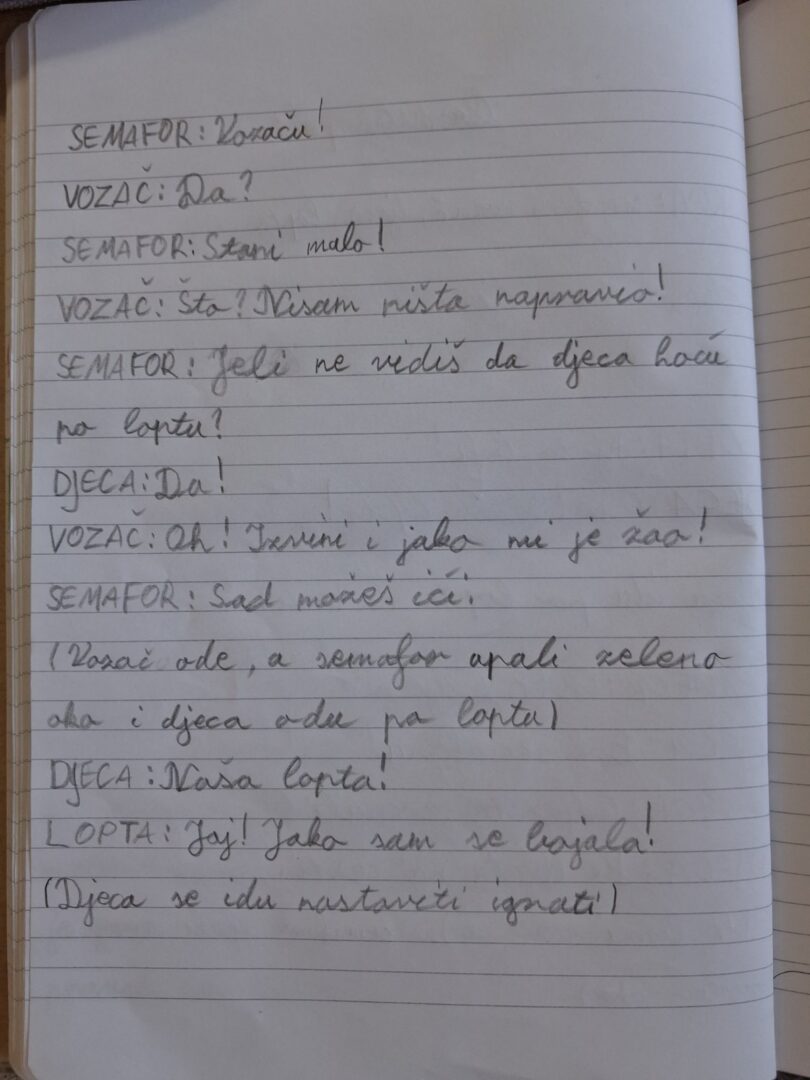 SEMAFOR: Vozaču!
VOZAČ: Da?
SEMAFOR: Stani malo!
VOZAČ: Što? Nisam ništa napravio!
SEMAFOR: Jeli ne vidiš da djeca hoću
po loptu?
DJECA: Da!
VOZAČ: Oh! Izvini i jako mi je žao!
SEMAFOR: Sad možeš ići.
(Vozač ode, a semafor upali zeleno
oko i djeca odu po loptu)
DJECA: Naša lopta!
LOPTA: Joj! Jako sam se bojala!
(Djeca se idu nastaviti igrati)